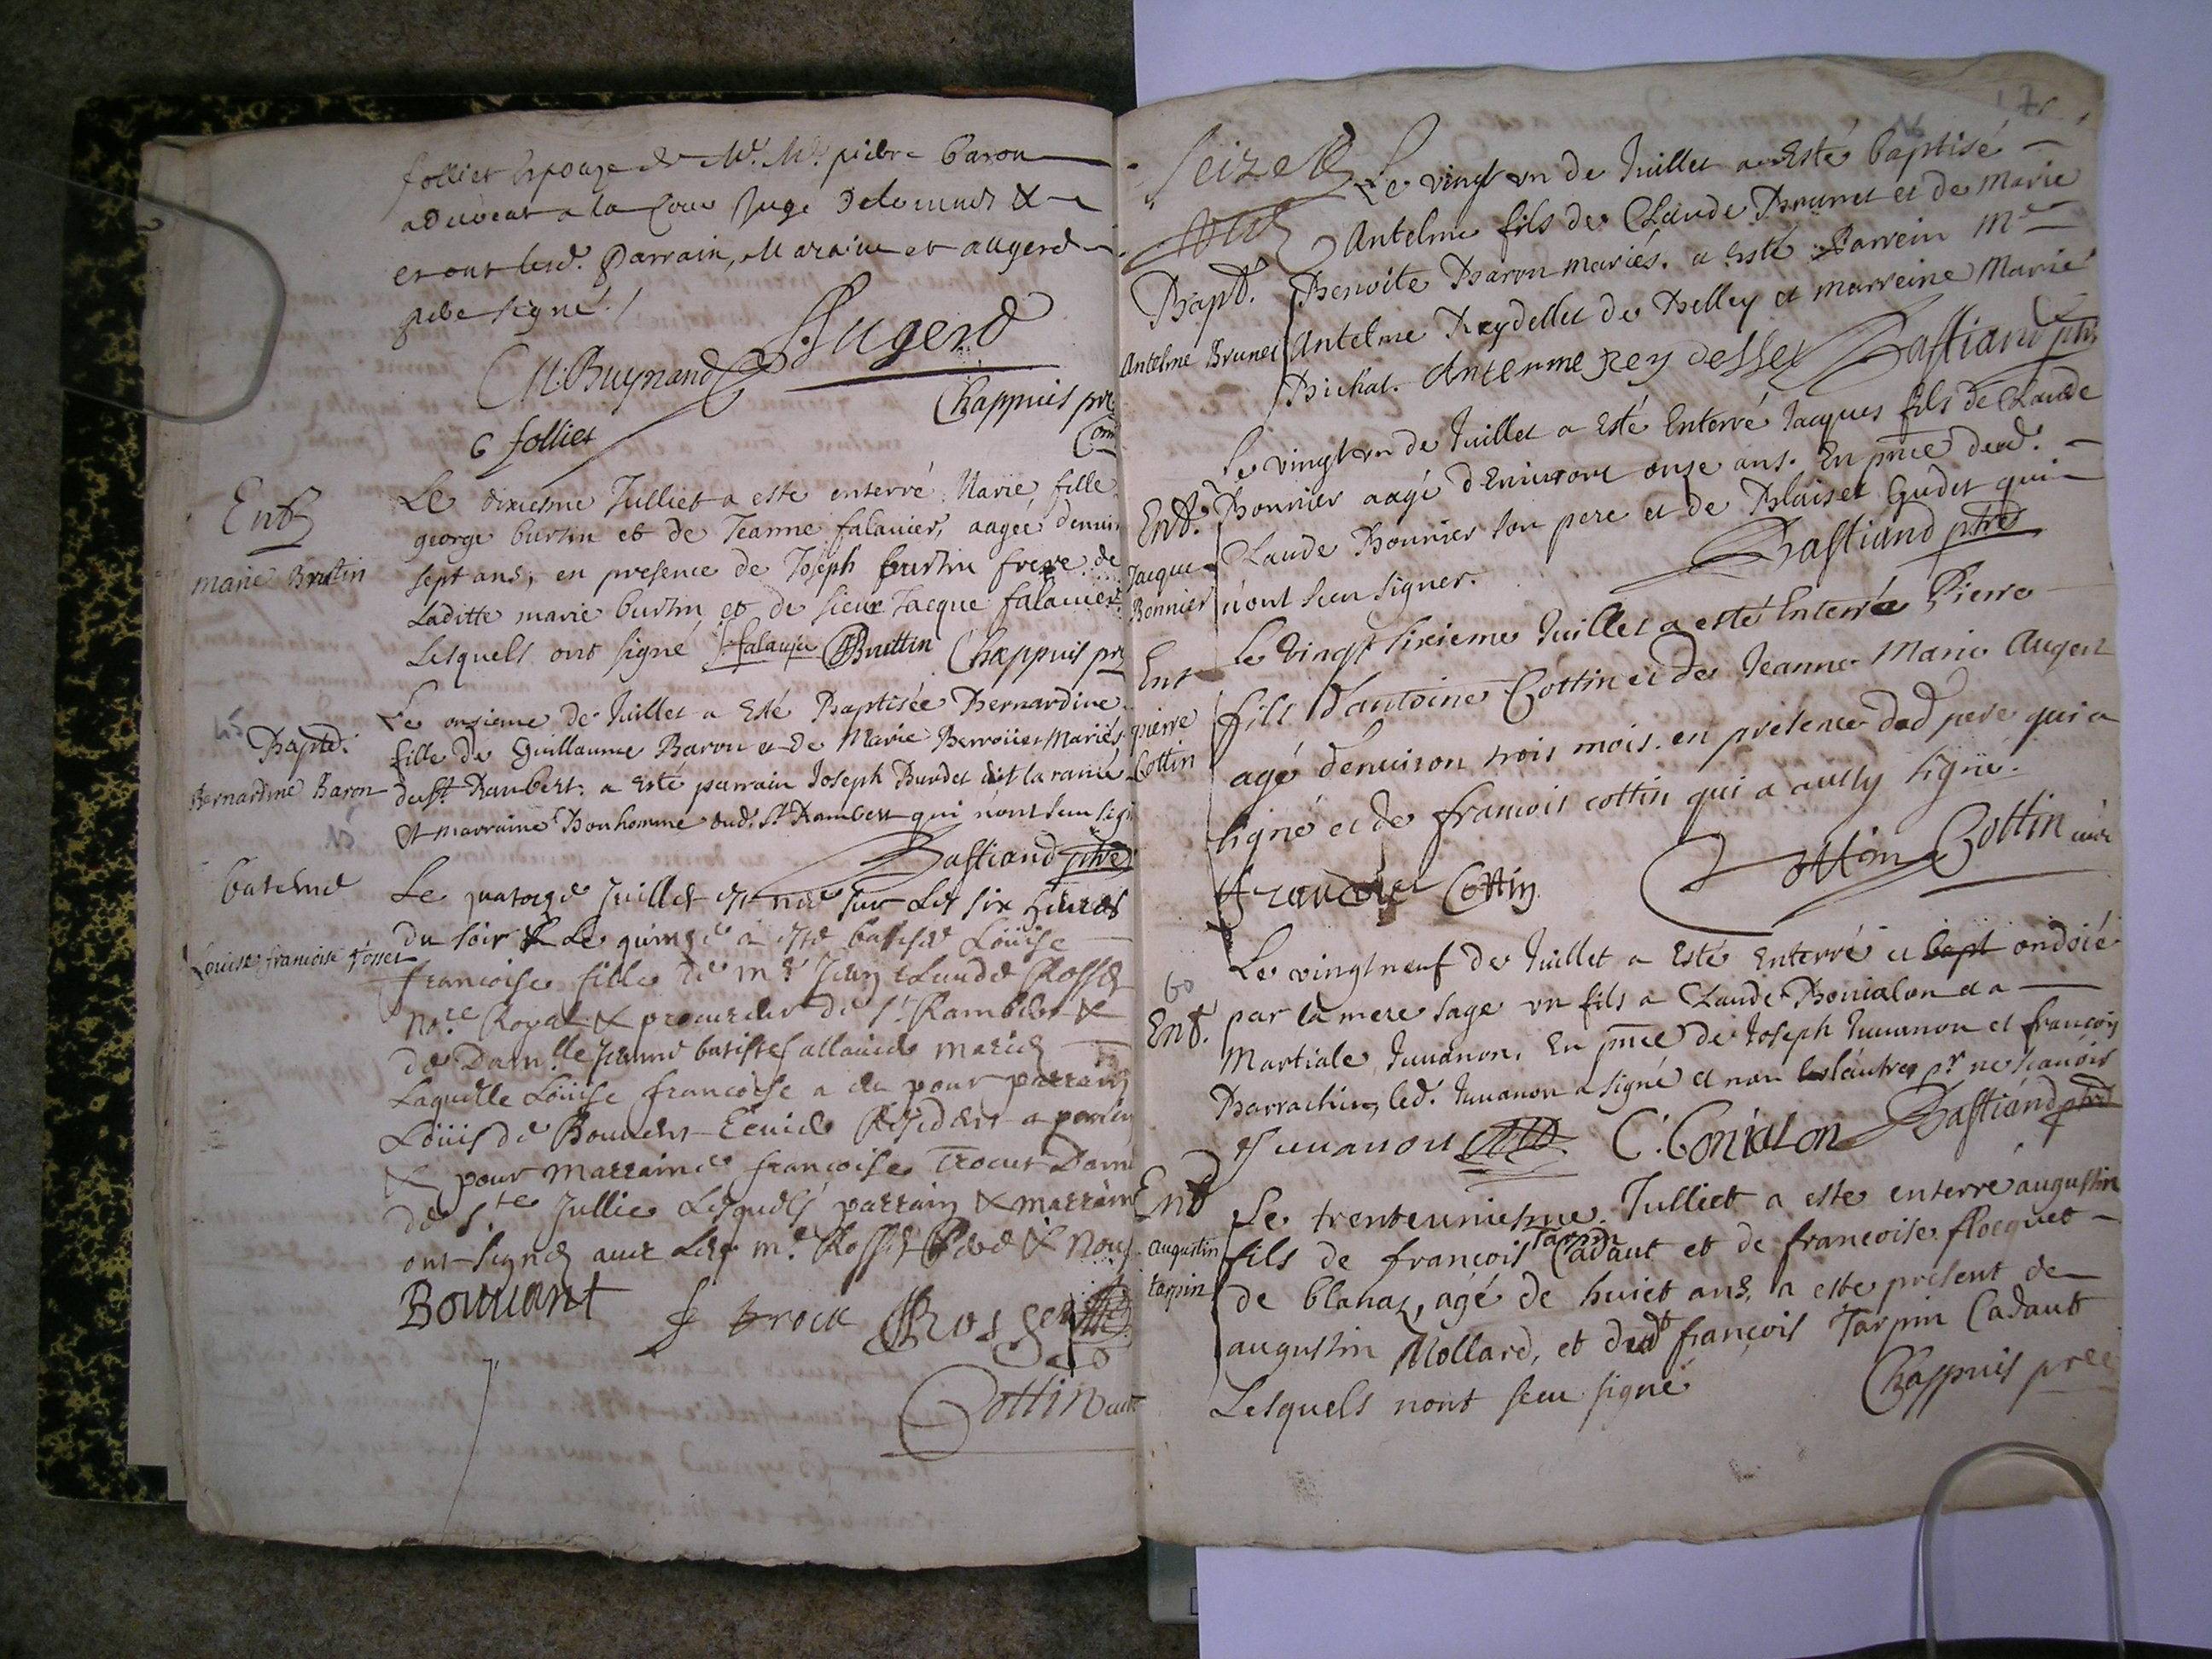 folliet Espouze de Mr. Me. pierre baron
advocat a la Cour Juge
et ont lesd. Parrain, Maraine et augerd
pere signé /
M. Buynand Augerd
C folliet
Chappuis pre
Ent
marie Brutin
Le dixiesme Julliet a este enterré Marie, fille
george burtin et de Jeanne falavier, aagée denvir
sept ans, en presence de Joseph burtin frere de
Laditte marie burtin et de sieur Jacque falavier
Lesquels ont signé falavier Bruttin Chappuis pre
Baptd.
Bernardine Baron
Le onsieme de Juillet a Esté Baptisée Bernardine
fille de Guillaume Baron et de Marie Mariés
dust. Rambert, a esté parrain Joseph Burdet dit la ramée
et marraine Bonhomme dud. St Rambert qui n'ont sceu sig
Bastiand ptre
bateme
Louise francoise Rosset
Le quatorze Juillet est née sur Les six heures
du soir & Le quinze a esté batisée Loüise
francoise fille de mre Jean Claude Rosset
nore Royal & procureur de St Rambert &
de Damlle Jeanne batiste fallavier mariés
Laquelle Loüise francoise a eu pour parrain
Loüis de Bouvent Ecuier Residant a
& pour marraine francoise Trocut Dame
de Ste Jullie Lesquels parrain & marraine
ont signés avec Led. mre Rosset pere & nous
Bouvant f trocu Rosset
Cottin curé
17
Seize
Bapt.
Antelme Brunet
Le vingt un de Juillet a Esté baptisé
Antelme fils de Claude Brunet et de Marie
Benoite Baron mariés. a esté Parrein Me
Antelme Reydellet de Belley et marreine Marie
Bichat. Antenme Reydellet Bastiand ptre
Ent.
Jacque
Bonnier
Le vingt un de Juillet a Esté Enterré Jacques fils de Claude
Bonnier aagé d'Environ onse ans. En pnce dud.
Claude Bonnier son pere et de Blaise Gudet qui
n'ont sceu signer. Bastiand ptre
Ent
pierre
Cottin
Le vingt sixieme Juillet a esté Enterré Pierre
fils d'antoine Cottin et de Jeanne Marie Augerd
agé denviron trois mois. en presence dud pere qui a
signé et de francois cottin qui a aussy signé.
francois Cottin Cottin Cottin curé
60
Ent.
Le vingt neuf de Juillet a Esté Enterré et bapt ondoié
par la mere sage un fils a Claude Bonialon et a
Martiale Juvanon. En pnce de Joseph Juvanon et francois
Barrachin, led. Juvanon a signé et non les l'autre pr ne scavoir
Juvanon C. Conialon Bastiand ptre
Ent
augustin
tarpin
Le trenteuniesme Julliet a este enterré augustin
fils de francois Tarpin Cadaut et de francoise flocquet
de blanaz, agé de huict ans, a este present de
augustin Mollard, et dudt françois Tarpin Cadaut
Lesquels nont sceu signé Chappuis pre